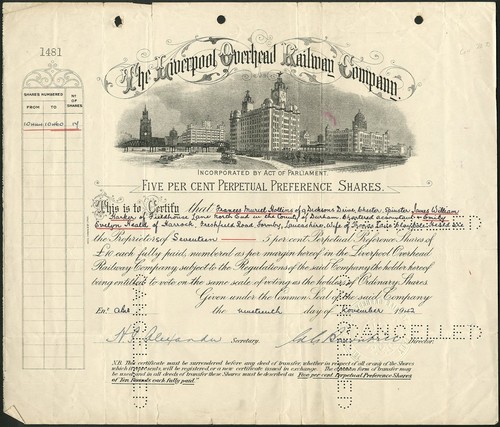 1481
The Liverpool Overhead Railway Company
SHARES NUMBERED
Nº OF SHARES
FROM
TO
17
INCORPORATED BY ACT OF PARLIAMENT.
FIVE PER CENT PERPETUAL PREFERENCE SHARES.
This is to Certify that Frances Muriel Hollins of 9 Dicksons Drive, Chester, Spinster, James William
Harker of Fieldhouse Lane North End in the County of Durham, Chartered accountant & Emily
Evelyn Heald of Karrock, Freshfield Road Formby, Lancashire, Wife of Heald are
the Proprietors of Seventeen 5 per cent Perpetual Preference Shares of
£10 each fully paid, numbered as per margin hereof in the Liverpool Overhead
Railway Company, subject to the Regulations of the said Company the holder hereof being
entitled to vote on the same scale of voting as the holders of Ordinary Shares.
Given under the Common Seal of the said Company
the nineteenth day of November 1942
Secretary.
Director.
CANCELLED
CANCELLED
CANCELLED
N.B. This certificate must be surrendered before any deed of transfer, whether in respect of all or any of the Shares
which it represents, will be registered, or a new certificate issued in exchange. The common form of transfer may
be used, and in all deeds of transfer these Shares must be described as Five per cent Perpetual Preference Shares
of Ten Pounds each, fully paid."